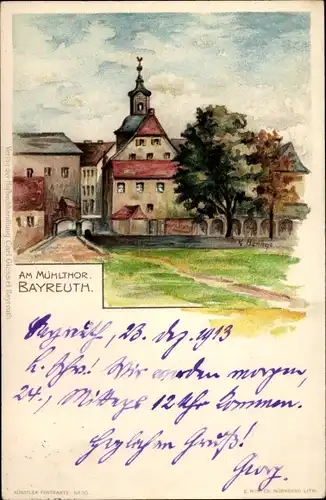 Verlag der Hofbuchhandlung Carl Giessel Bayreuth.
AM MÜHLTHOR.
BAYREUTH.
Bayreuth, 23. Dez. 1913
L. Schw.! Wir werden morgen,
24., Mittags 12 Uhr kommen.
Herzlichen Gruß!
Georg.
KÜNSTLER POSTKARTE No. 10.
E. NISTER, NÜRNBERG LITH.